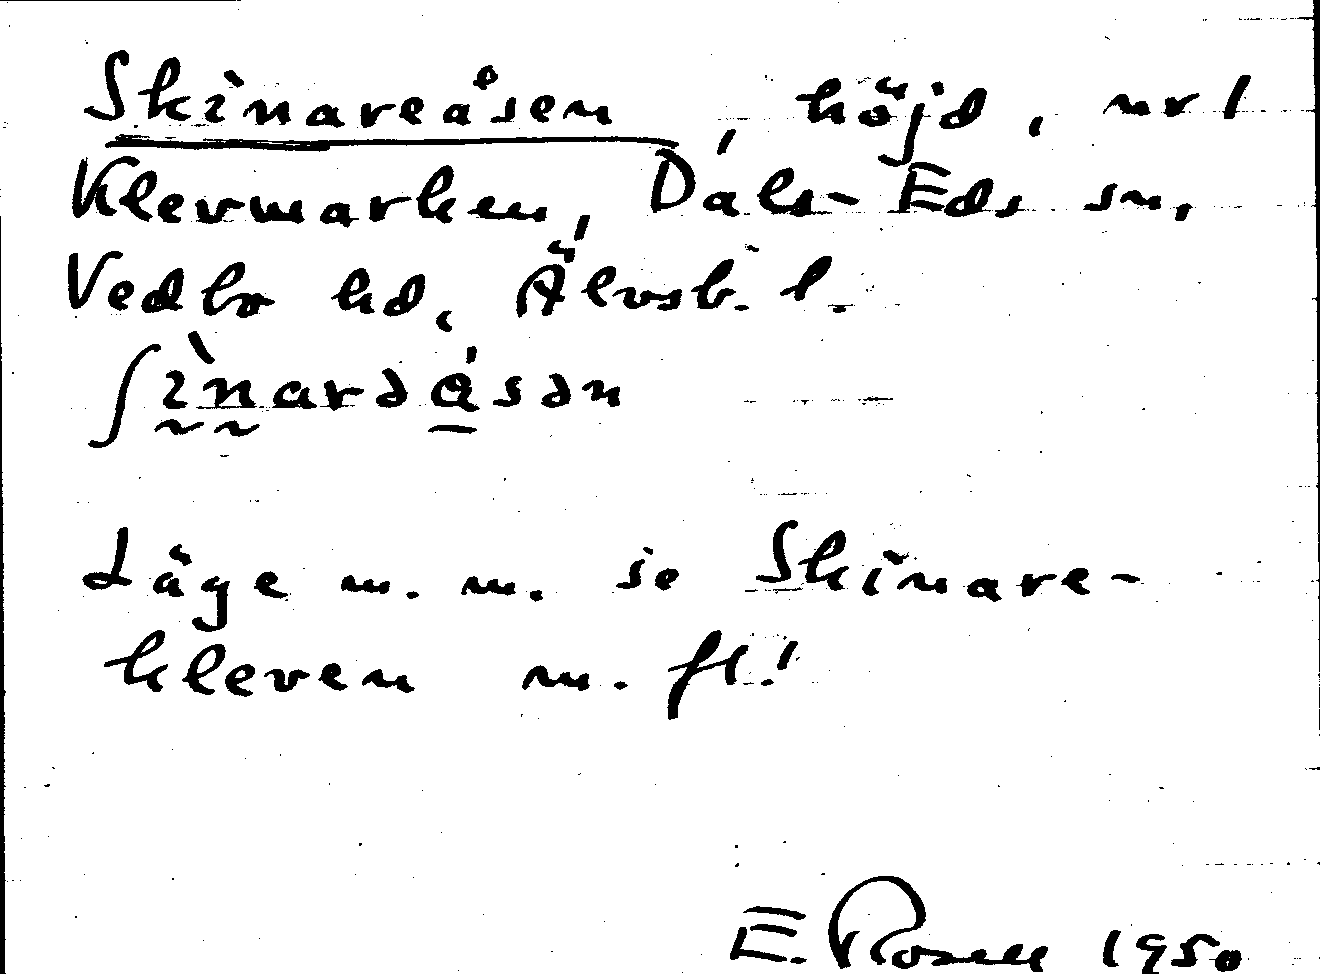 Skinareåsen, höjd, nr 1
Klevmarken, Dals-Eds sn,
Vedbo hd, Älvsb. l.
ʃìnarəåsən
Läge m. m. se Skinare-
kleven m. fl.!
E. Rosell 1950